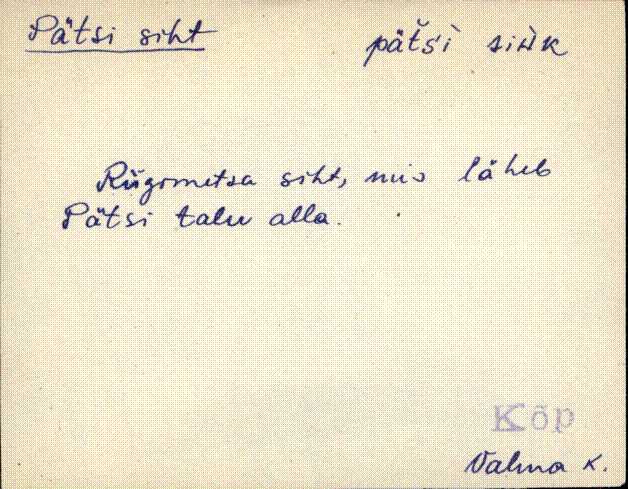 Pätsi siht
pät̆s̀i sihk
Riigimetsa siht, mis läheb
Pätsi talu alla.
Kõp
Valma k.